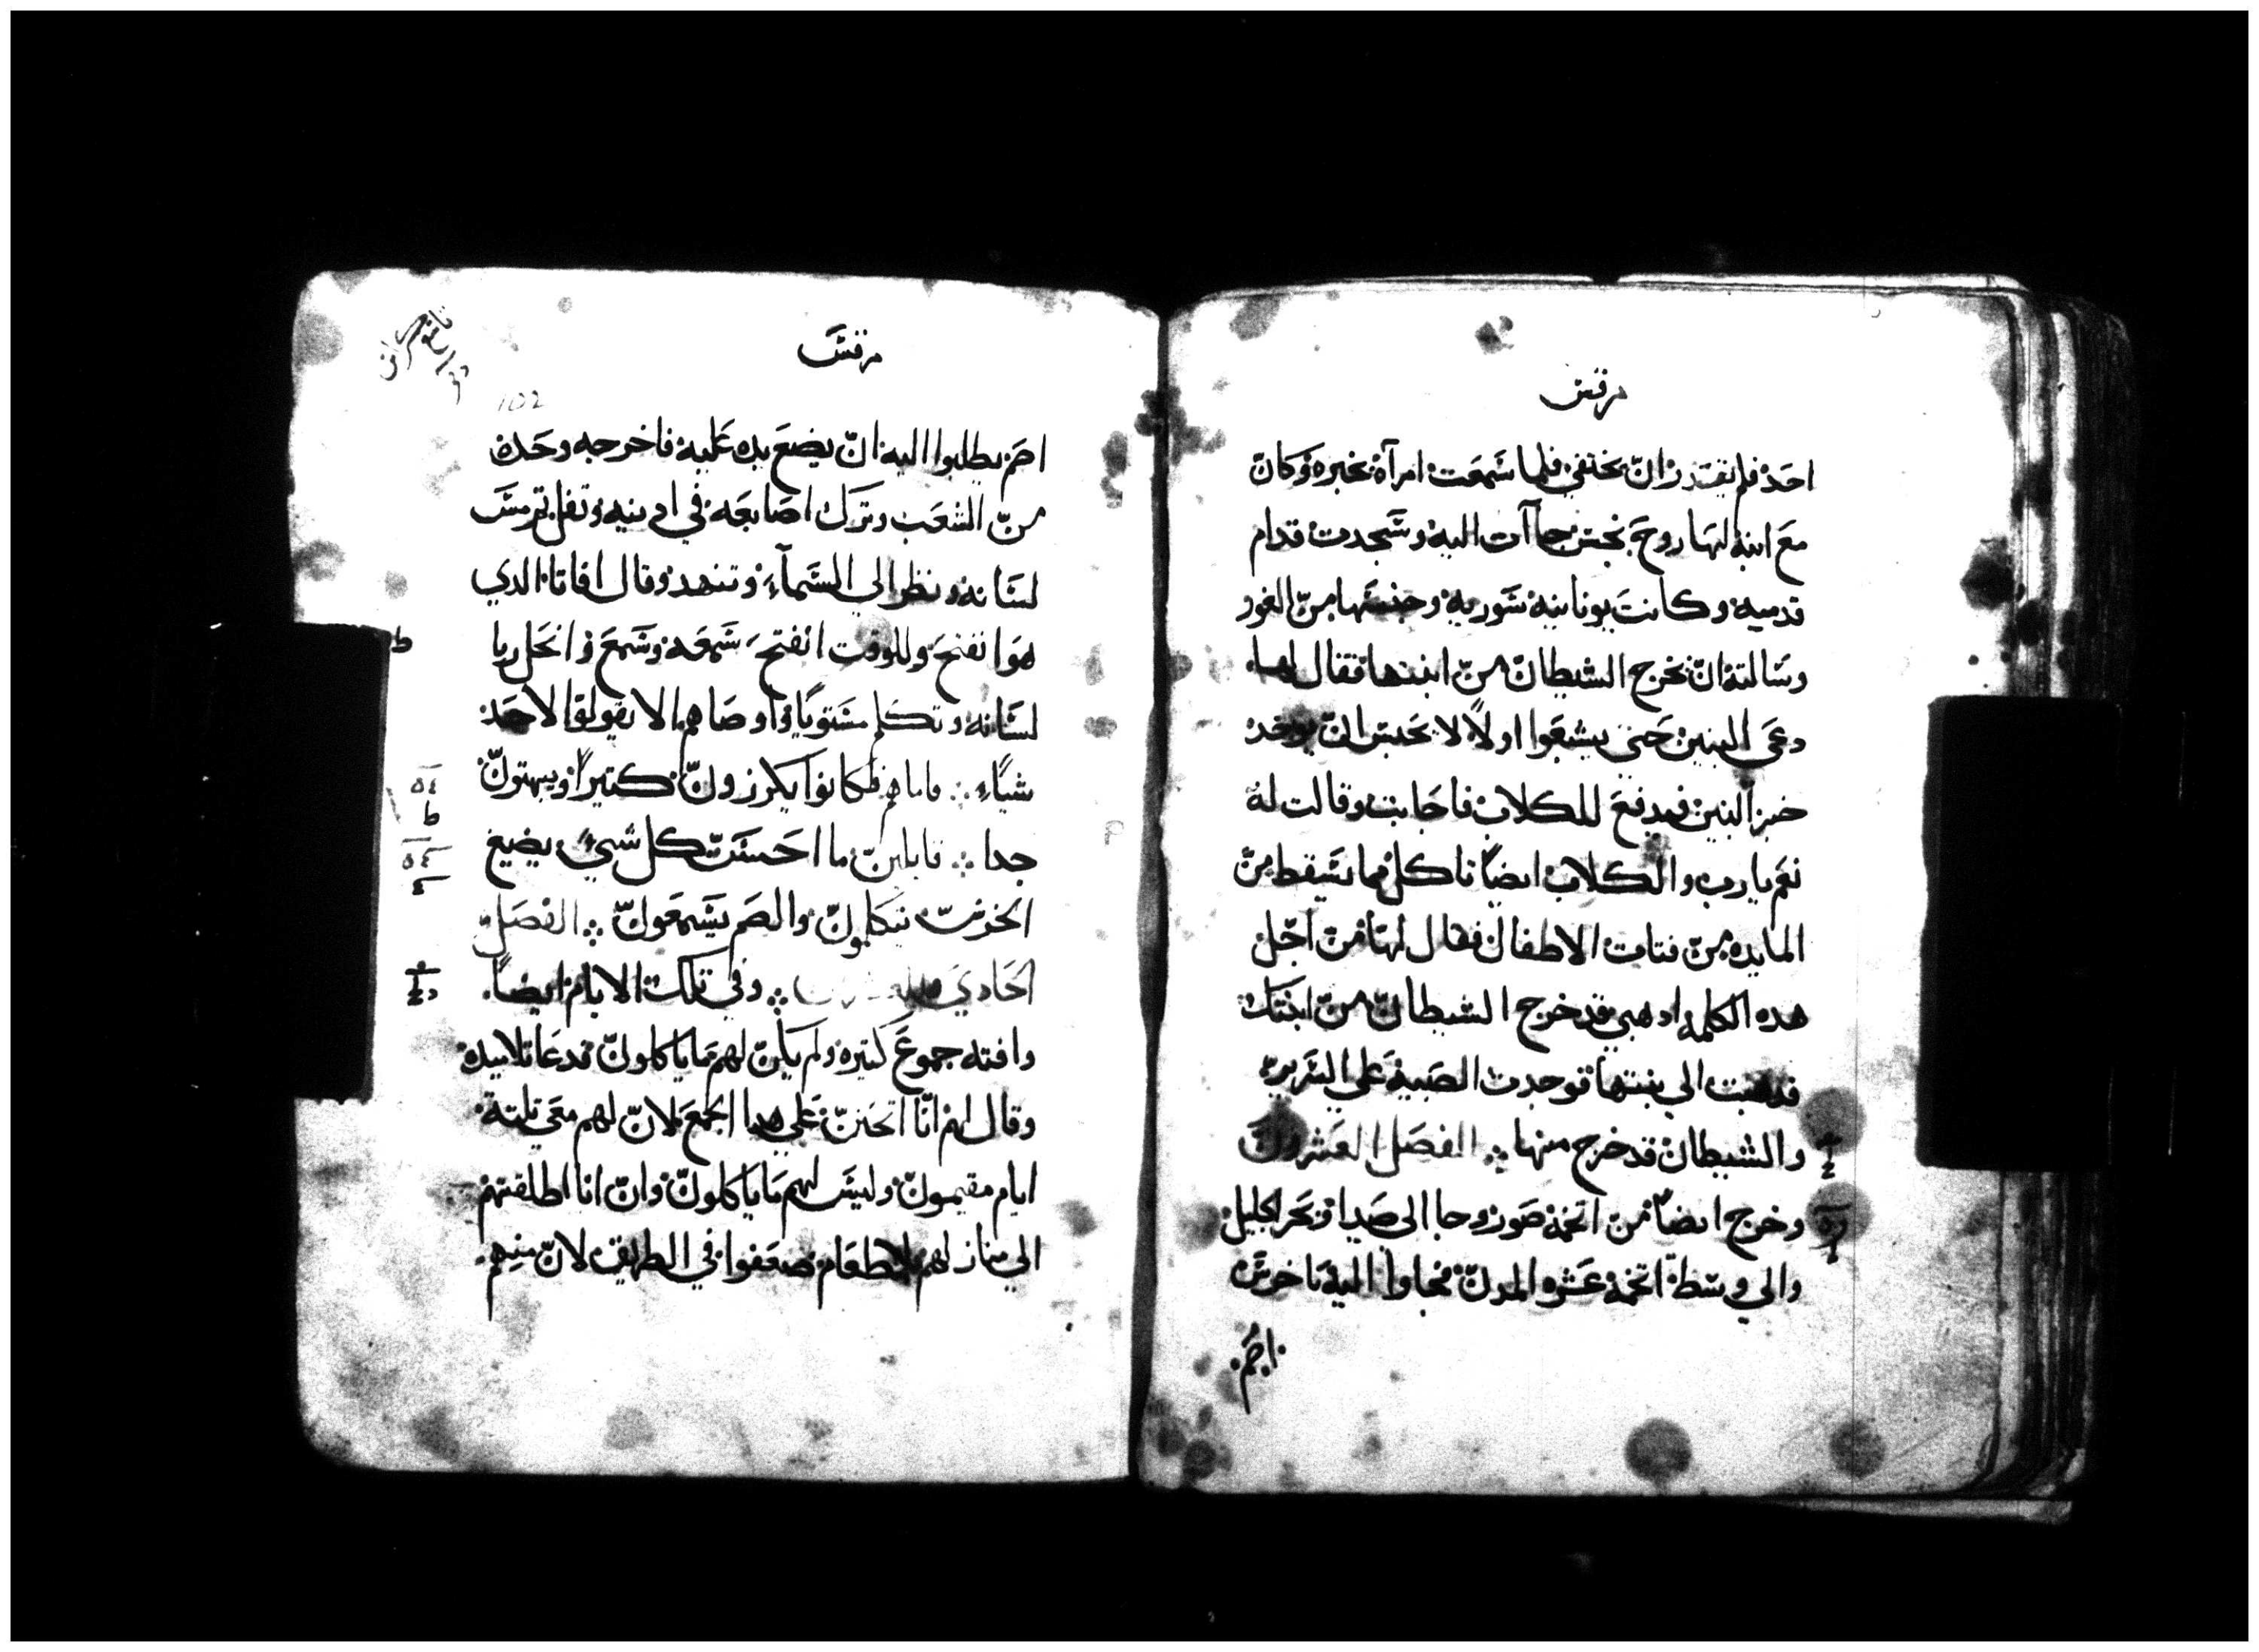 مرقس
احد فلم يقتدر ان يختفي فلما سمعت امرآة بخبره وكان
مع ابنة لها روح نجس جاآت اليه وسجدت قدام
قدميه وكانت يونانيه سوريه وجنسها من الغور
وسالته ان يخرج الشيطان من ابنتها فقال لها
دعي البنين حتي يشبعوا اولاً لا يحسن ان يوخد
خبز البنين فيدفع للكلاب فاجابت وقالت له
نعم يارب والكلاب ايضاً تاكل مما يسقط من
المايده من فتات الاطفال فقال لها من اجل
هده الكلمه ادهبي فقد خرج الشيطان من ابنتك
فدهبت الي بيتها فوجدت الصبية علي السرير
والشيطان قد خرج منها ⁘ الفصل العشرون
وخرج ايضاً من اتخمة صور وجا الى صيدا ونحر الجليل
والي وسطة اتخمة عشره المدن فجاوا اليه باخرس
اصم
مرقس
102
اصم يطلبوا اليه ان يضع يده عليه فاخرجه وحده
من الشعب وترك اصابعه في ادنيه وتفل ثم مس
لسانه ونظر الي السمآء وتنهد وقال افاتا الدي
هو انفتح وللوقت انفتح سمعه وسمع وانحل ربا
لسانه وتكلم مستويًا واوصاهم الا يقولوا لاحد
شياء ⁘ فاما هم فكانوا يكرزون كتيراً ويبهتون
جدا ⁘ قايلين ما احسن كل شيء يضيع
الخرس يتكلمون والصم يسمعون ⁘ الفصل
الحادي والعشرون ⁘ وفي تلك الايام ايضاً
وافته جموع كتيره ولم يكن لهم ما ياكلون فدعا تلاميده
وقال لهم انا اتحنن علي هدا الجمع لان لهم معي تلتة
ايام مقيمون وليس لهم ما ياكلون وان انا اطلقتهم
الي منازلهم بلا طعام ضعفوا في الطريق لان منهم